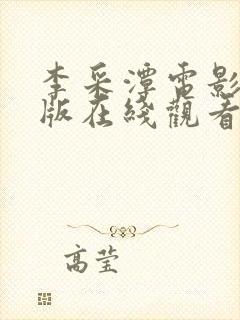 李采潭電影
版在綫觀看
高莹